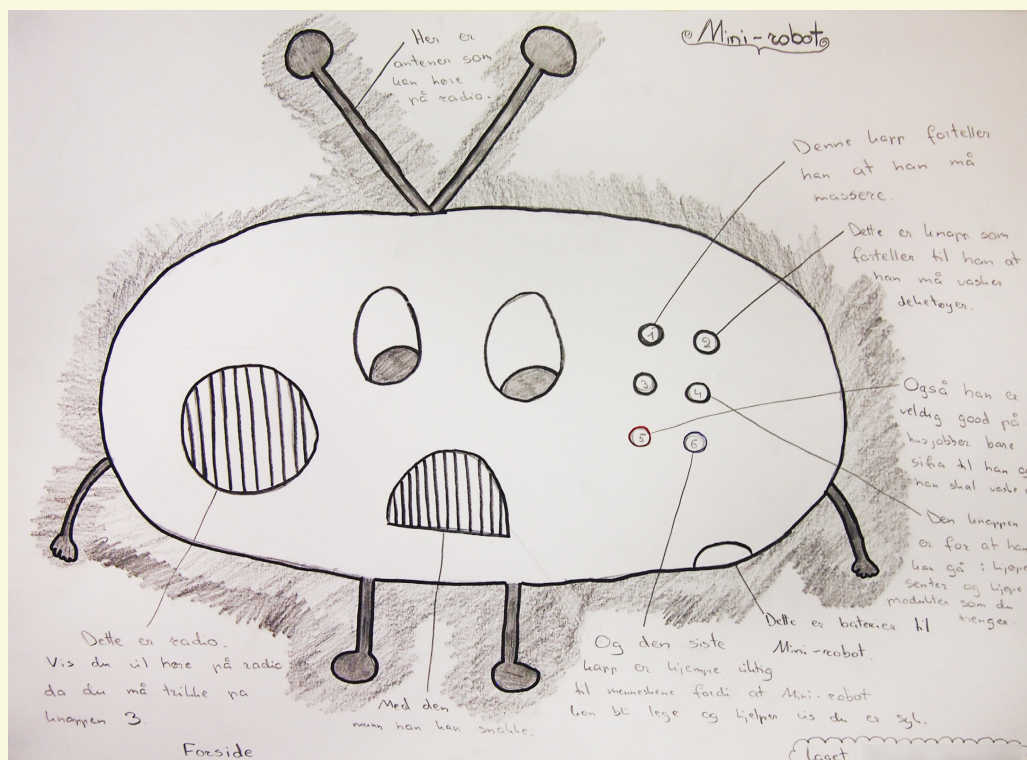 Mini-robot
Her er
antener som
kan høre
på radio.
Denne knapp forteller
han at han må
massere.
Dette er knapp som
forteller til han at
han må vasker
deketøyer.
1
2
3
4
5
6
Også han er
veldig good på
husjobber bare
sifra til han og
han skal vaske
Den knappen
er for at han
kan gå i kjøpe
senter og kjøpe
produkter som du
trenger.
Dette er baterier til
Mini-robot.
Og den siste
kapp er kjempe viktig
til menneskene fordi at Mini-robot
kan bli lege og hjelper vis du er syk.
Med den
munn han kan snakke.
Dette er radio.
Vis du vil høre på radio
da du må trikke på
knappen 3
Forside
Laget